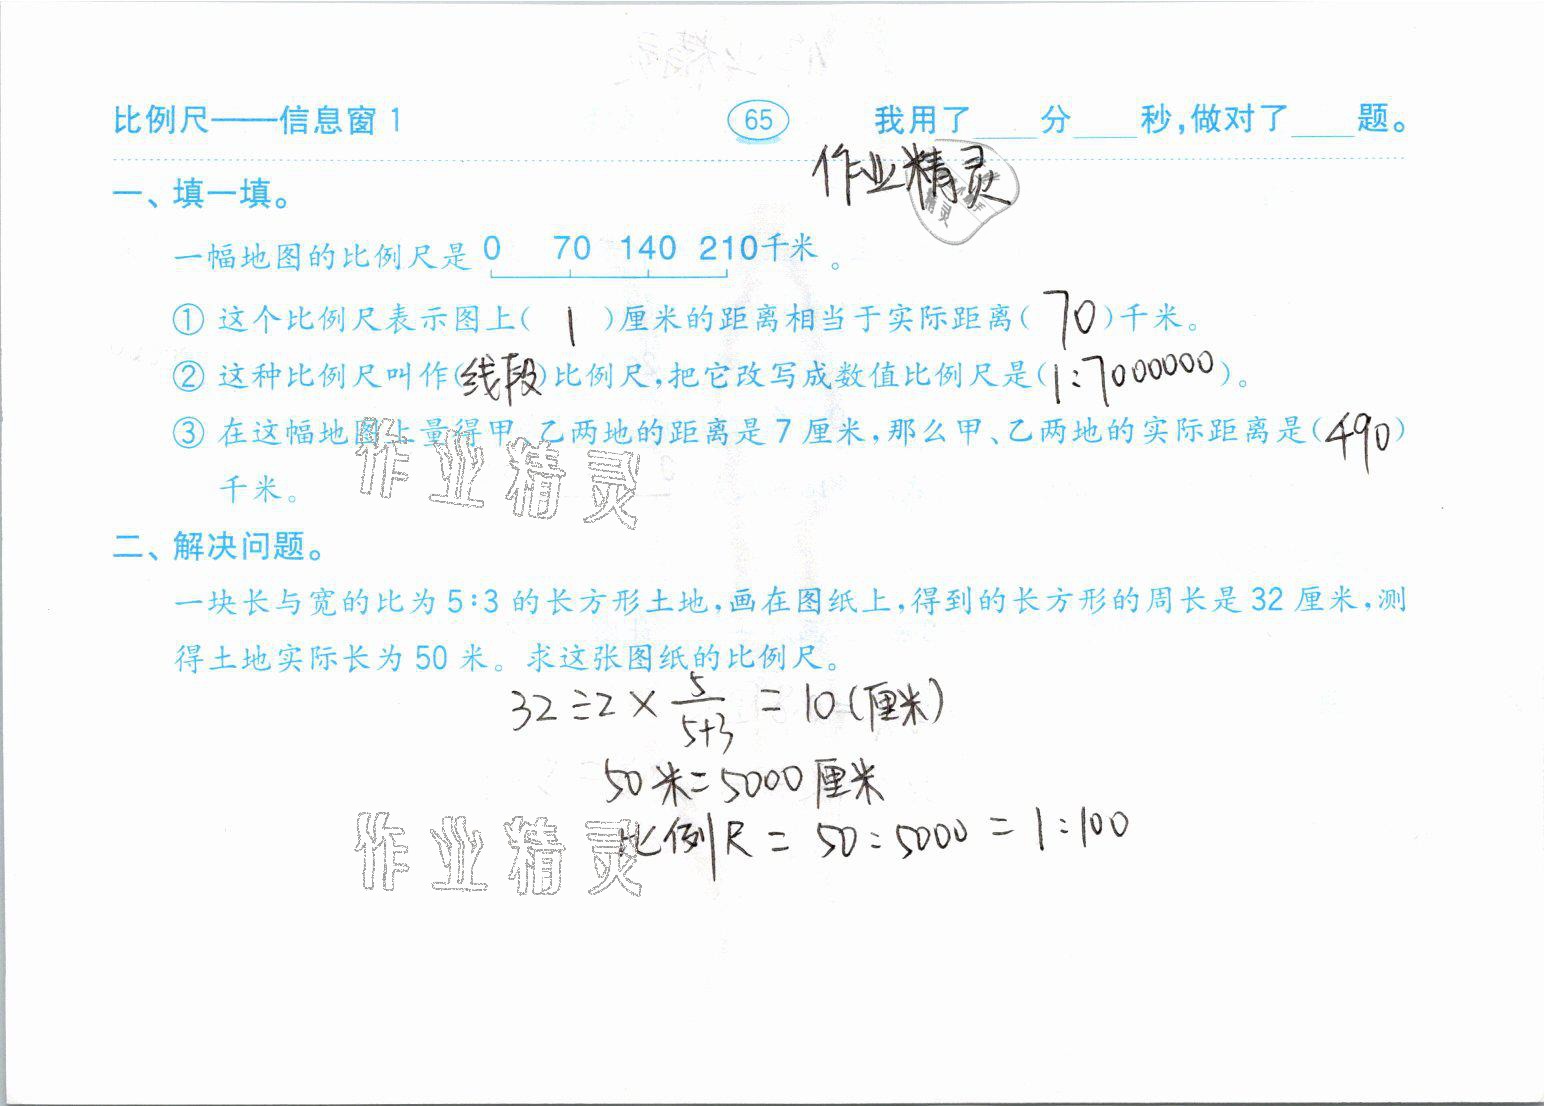 比例尺——信息窗1 65 我用了____分____秒,做对了____题。
作业精灵
一、填一填。
一幅地图的比例尺是 0 70 140 210千米 。
① 这个比例尺表示图上( 1 )厘米的距离相当于实际距离( 70 )千米。
② 这种比例尺叫作(线段)比例尺,把它改写成数值比例尺是(1:7000000)。
③ 在这幅地图上量得甲、乙两地的距离是7厘米,那么甲、乙两地的实际距离是(490)
千米。
作业精灵
二、解决问题。
一块长与宽的比为5:3的长方形土地,画在图纸上,得到的长方形的周长是32厘米,测
得土地实际长为50米。求这张图纸的比例尺。
32÷2×5/(5+3)=10(厘米)
50米=5000厘米
比例尺=50:5000=1:100
作业精灵